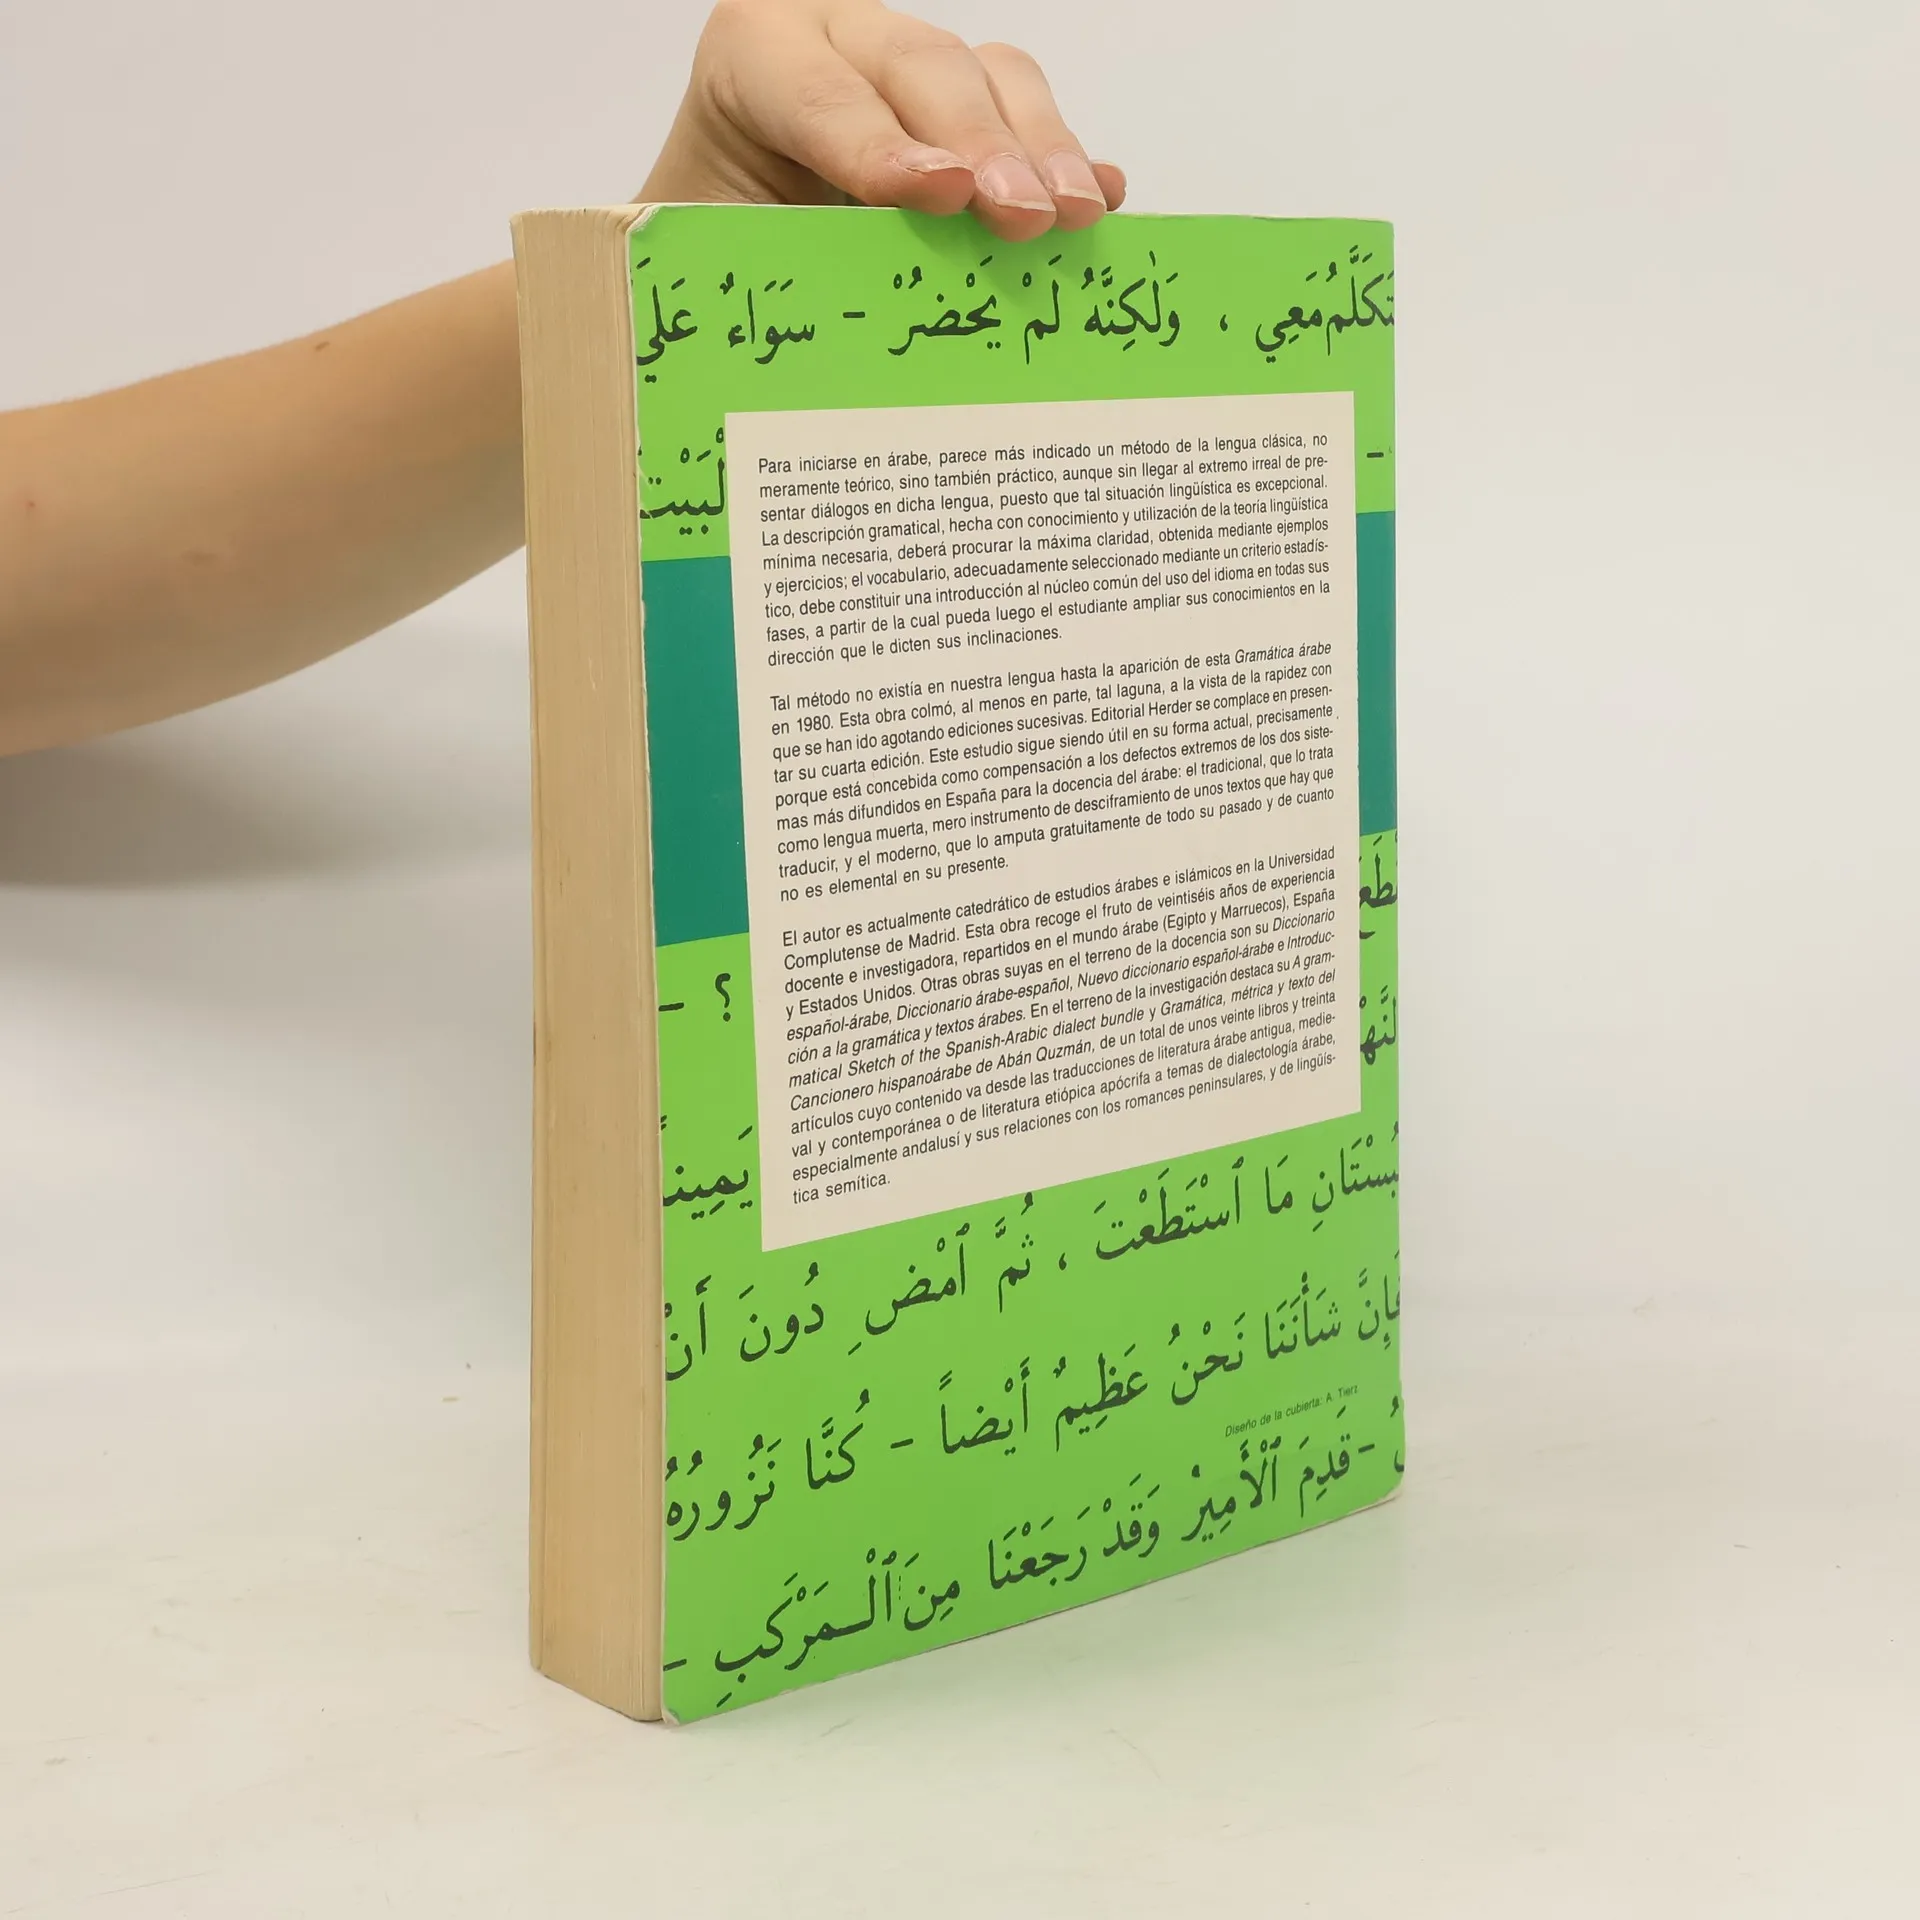 تَكَلَّمُ مَعِي ، وَلٰكِنَّهُ لَمْ يَحْضُرْ - سَوَاءٌ عَلَي
- لْبَيْت
Para iniciarse en árabe, parece más indicado un método de la lengua clásica, no
meramente teórico, sino también práctico, aunque sin llegar al extremo irreal de pre-
sentar diálogos en dicha lengua, puesto que tal situación lingüística es excepcional.
La descripción gramatical, hecha con conocimiento y utilización de la teoría lingüística
mínima necesaria, deberá procurar la máxima claridad, obtenida mediante ejemplos
y ejercicios; el vocabulario, adecuadamente seleccionado mediante un criterio estadís-
tico, debe constituir una introducción al núcleo común del uso del idioma en todas sus
fases, a partir de la cual pueda luego el estudiante ampliar sus conocimientos en la
dirección que le dicten sus inclinaciones.
Tal método no existía en nuestra lengua hasta la aparición de esta Gramática árabe
en 1980. Esta obra colmó, al menos en parte, tal laguna, a la vista de la rapidez con
que se han ido agotando ediciones sucesivas. Editorial Herder se complace en presen-
tar su cuarta edición. Este estudio sigue siendo útil en su forma actual, precisamente
porque está concebida como compensación a los defectos extremos de los dos siste-
mas más difundidos en España para la docencia del árabe: el tradicional, que lo trata
como lengua muerta, mero instrumento de desciframiento de unos textos que hay que
traducir, y el moderno, que lo amputa gratuitamente de todo su pasado y de cuanto
no es elemental en su presente.
El autor es actualmente catedrático de estudios árabes e islámicos en la Universidad
Complutense de Madrid. Esta obra recoge el fruto de veintiséis años de experiencia
docente e investigadora, repartidos en el mundo árabe (Egipto y Marruecos), España
y Estados Unidos. Otras obras suyas en el terreno de la docencia son su Diccionario
español-árabe, Diccionario árabe-español, Nuevo diccionario español-árabe e Introduc-
ción a la gramática y textos árabes. En el terreno de la investigación destaca su A gram-
matical Sketch of the Spanish-Arabic dialect bundle y Gramática, métrica y texto del
Cancionero hispanoárabe de Abán Quzmán, de un total de unos veinte libros y treinta
artículos cuyo contenido va desde las traducciones de literatura árabe antigua, medie-
val y contemporánea o de literatura etiópica apócrifa a temas de dialectología árabe,
especialmente andalusí y sus relaciones con los romances peninsulares, y de lingüís-
tica semítica.
؟ -
يَمِينـ
بُسْتَانِ مَا ٱسْتَطَعْتَ ، ثُمَّ ٱمْضِ دُونَ أَنْ
فَإِنَّ شَأْنَنَا نَحْنُ عَظِيمٌ أَيْضاً - كُنَّا نَزُورُهُ
Diseño de la cubierta: A. Tierz
- قَدِمَ ٱلْأَمِيرُ وَقَدْ رَجَعْنَا مِنَ ٱلْـمَرْكَبِ -